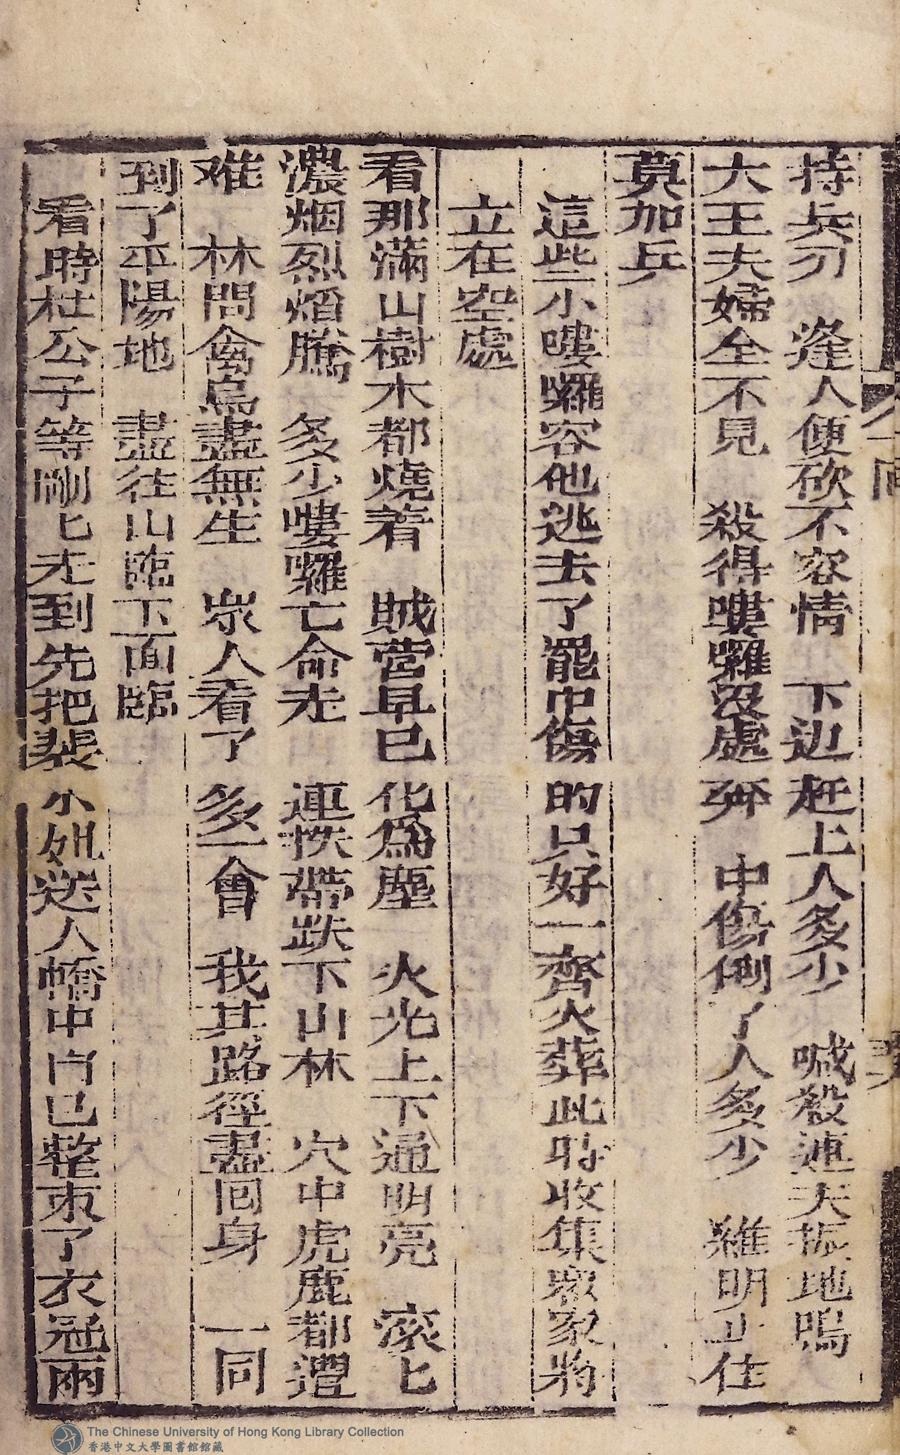 持兵刃　逢人便砍不容情　下边赶上人多少　喊殺連天振地鳴
大王夫婦全不見　殺得嘍囉没處奔　中傷倒了人多少　雞明止住
莫加兵
這些小嘍囉容他逃去了罷巾傷的只好一齊火葬此時收集衆家將
立在空處
看那滿山樹木都燒着　賊营早已化為塵　火光上下通明亮　滾匕
濃烟烈焰騰　多少嘍囉亡命走　連挨帶跌下山林　穴中虎鹿都遭
难　林間禽鳥盡無生　眾人看了多一會　我其路徑盡回身　一同
到了平陽地　盡往山臨下面臨
看時杜公子等剛匕走到先把裴小姐送人轎中自已整束了衣冠兩
The Chinese University of Hong Kong Library Collection
香港中文大學圖書館館藏